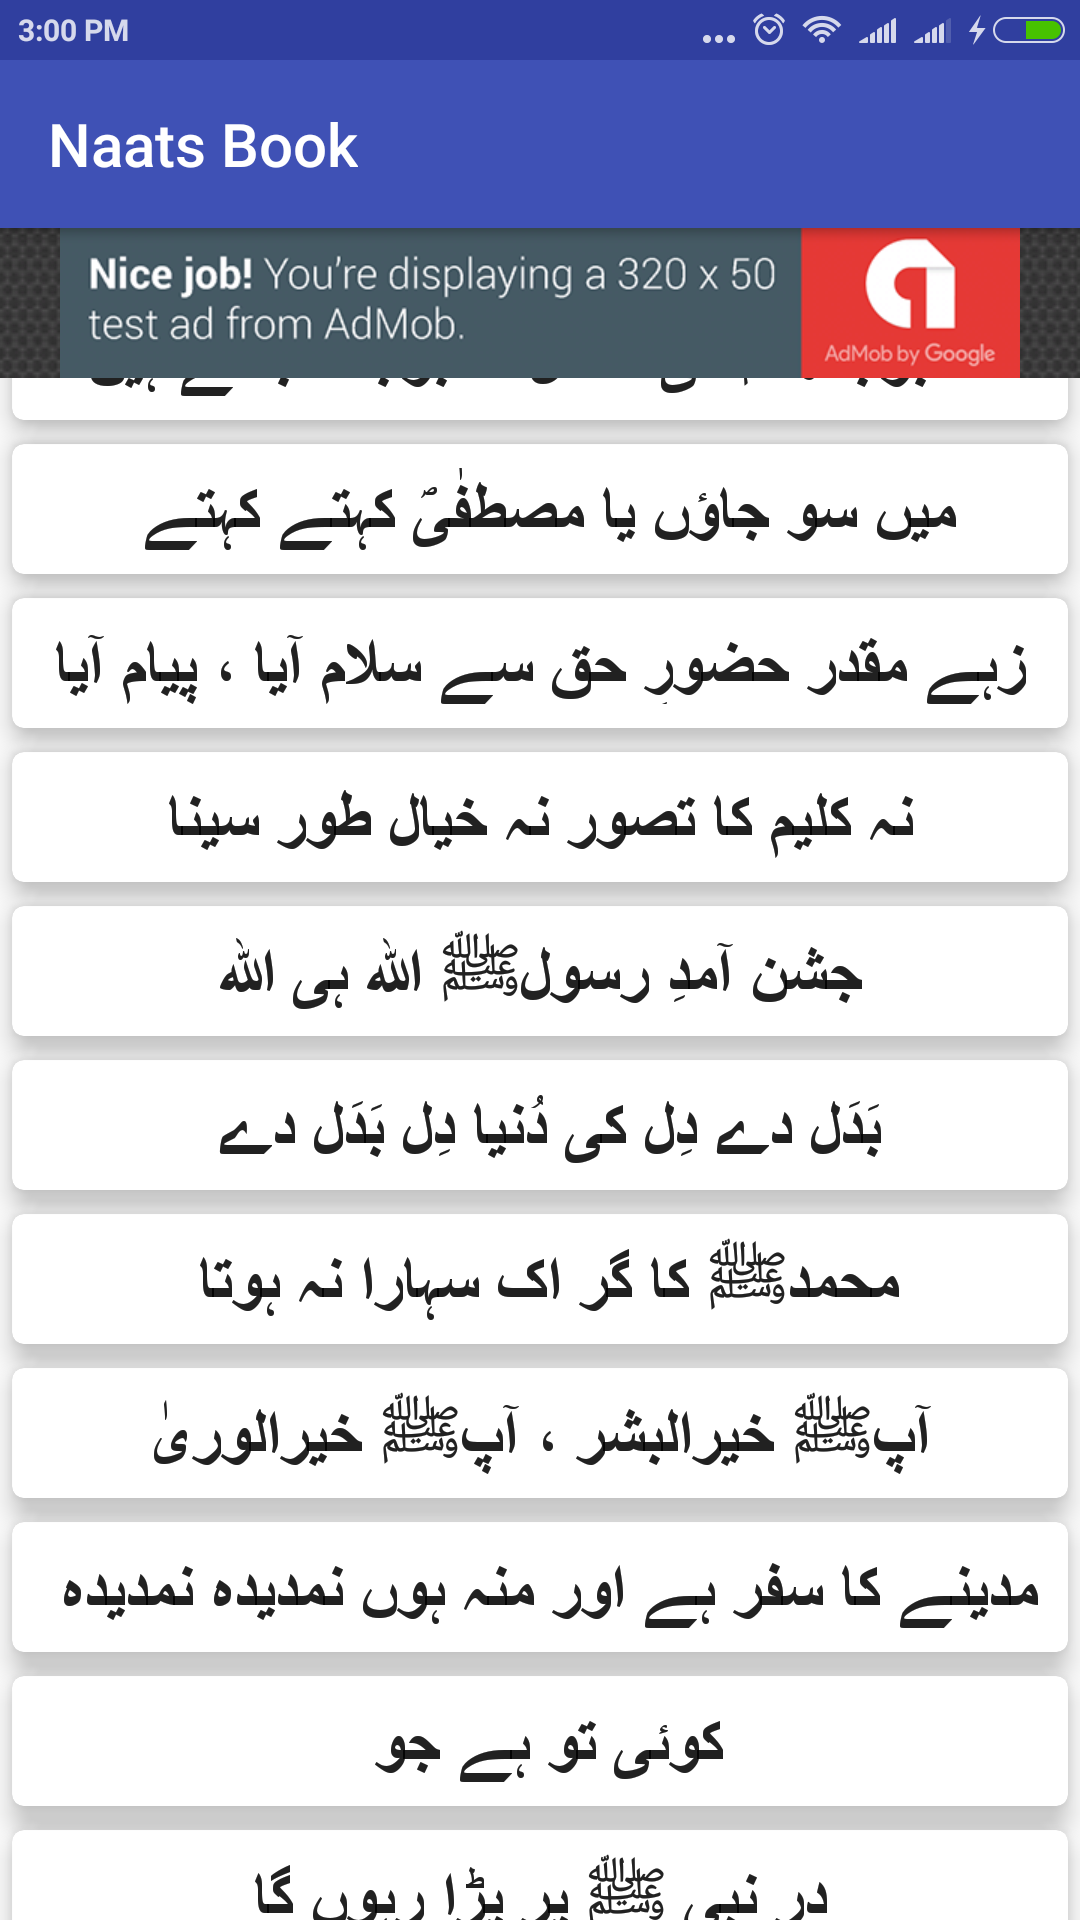 3:00 PM
Naats Book
Nice job! You're displaying a 320 x 50
test ad from AdMob.
AdMob by Google
میں سو جاؤں یا مصطفٰیؐ کہتے کہتے
زہے مقدر حضورِ حق سے سلام آیا ، پیام آیا
نہ کلیم کا تصور نہ خیال طور سینا
جشن آمدِ رسولﷺ اللہ ہی اللہ
بَدَل دے دِل کی دُنیا دِل بَدَل دے
محمدﷺ کا گر اک سہارا نہ ہوتا
آپﷺ خیرالبشر ، آپﷺ خیرالوریٰ
مدینے کا سفر ہے اور منہ ہوں نمدیدہ نمدیدہ
کوئی تو ہے جو
در نبی ﷺ پر پڑا رہوں گا